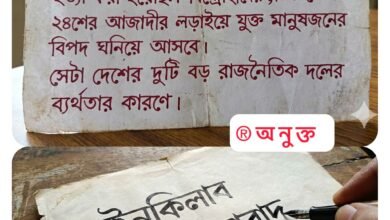 ২৪শের আজাদীর লড়াইয়ে যুক্ত মানুষজনের
বিপদ ঘনিয়ে আসবে।
সেটা দেশের দুটি বড় রাজনৈতিক দলের
ব্যর্থতার কারণে।
® অ নু ক্ত
ইনকিলাব